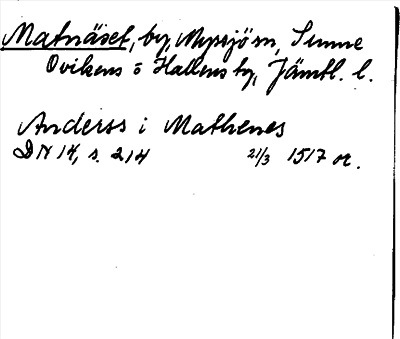 Matnäset, by, Myssjö sn, Sunne
Ovikens o Hallens tg, Jämtl. l.
Anderss i Mathenes
DN 14, s. 214 21/3 1517 or.